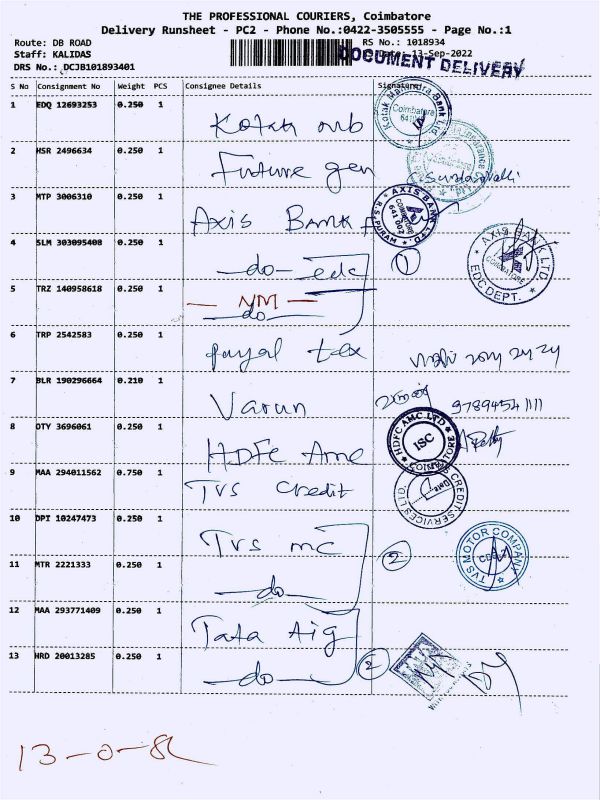 THE PROFESSIONAL COURIERS, Coimbatore
Delivery Runsheet - PC2 - Phone No.:0422-3505555 - Page No.:1
Route: DB ROAD
RS No.: 1018934
Staff: KALIDAS
Date: 13-Sep-2022
DRS No.: DCJB101893401
DOCUMENT DELIVERY
S No Consignment No Weight PCS Consignee Details Signature
1 EDQ 12693253 0.250 1
Kotak mb
Kotak Mahindra Bank Ltd
Coimbatore
2 HSR 2496634 0.250 1
Future gen
3 MTP 3006310 0.250 1
Axis Bank
AXIS BANK LTD
R.S. PURAM
COIMBATORE
641 002
4 SLM 303095408 0.250 1
do - edc
1
AXIS BANK LTD
COIMBATORE
EDC DEPT.
5 TRZ 140958618 0.250 1
- NM -
do
6 TRP 2542583 0.250 1
payal tex
7 BLR 190296664 0.210 1
Varun
8 OTY 3696061 0.250 1
HDFC Amc
HDFC AMC LTD
ISC
COIMBATORE
9 MAA 294011562 0.750 1
TVS Credit
CREDIT SERVICES LTD.
10 DPI 10247473 0.250 1
TVS mc
2
TVS MOTOR COMPANY
11 MTR 2221333 0.250 1
do
12 MAA 293771409 0.250 1
Tata Aig
13 HRD 20013285 0.250 1
do
2
13-0-